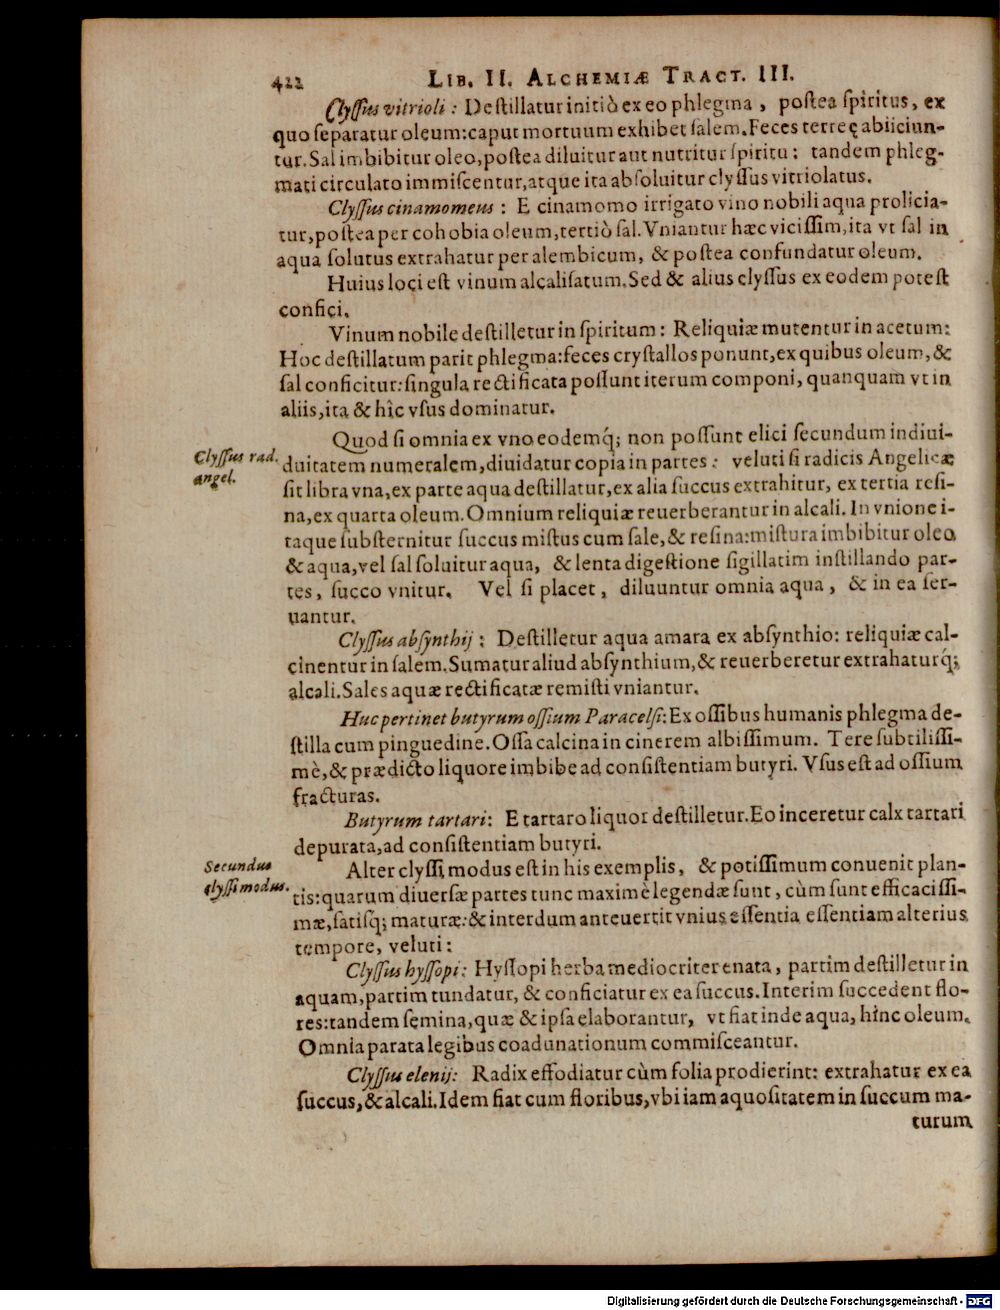 422 LIB. II. ALCHEMIÆ TRACT. III.
Clyſſus vitrioli: Deſtillatur initiò ex eo phlegma, poſtea ſpiritus, ex
quo ſeparatur oleum: caput mortuum exhibet ſalem. Feces terreę abiiciun-
tur. Sal imbibitur oleo, poſtea diluitur aut nutritur ſpiritu: tandem phleg-
mati circulato immiſcentur, atque ita abſoluitur clyſſus vitriolatus.
Clyſſus cinamomeus: E cinamomo irrigato vino nobili aqua prolicia-
tur, poſtea per cohobia oleum, tertiò ſal. Vniantur hæc viciſſim, ita vt ſal in
aqua ſolutus extrahatur per alembicum, & poſtea confundatur oleum.
Huius loci eſt vinum alcaliſatum. Sed & alius clyſſus ex eodem poteſt
confici.
Vinum nobile deſtilletur in ſpiritum: Reliquiæ mutentur in acetum:
Hoc deſtillatum parit phlegma: feces cryſtallos ponunt, ex quibus oleum, &
ſal conficitur: ſingula rectificata poſſunt iterum componi, quanquam vt in
aliis, ita & hîc vſus dominatur.
Quod ſi omnia ex vno eodemq́; non poſſunt elici ſecundum indiui-
Clyſſus rad.
angel.
duitatem numeralem, diuidatur copia in partes: veluti ſi radicis Angelicæ
ſit libra vna, ex parte aqua deſtillatur, ex alia ſuccus extrahitur, ex tertia reſi-
na, ex quarta oleum. Omnium reliquiæ reuerberantur in alcali. In vnione i-
taque ſubſternitur ſuccus miſtus cum ſale, & reſina: miſtura imbibitur oleo
& aqua, vel ſal ſoluitur aqua, & lenta digeſtione ſigillatim inſtillando par-
tes, ſucco vnitur. Vel ſi placet, diluuntur omnia aqua, & in ea ſer-
uantur.
Clyſſus abſynthij: Deſtilletur aqua amara ex abſynthio: reliquiæ cal-
cinentur in ſalem. Sumatur aliud abſynthium, & reuerberetur extrahaturq́;
alcali. Sales aquæ rectificatæ remiſti vniantur.
Huc pertinet butyrum oſſium Paracelſi: Ex oſſibus humanis phlegma de-
ſtilla cum pinguedine. Oſſa calcina in cinerem albiſſimum. Tere ſubtiliſſi-
mè, & prædicto liquore imbibe ad conſiſtentiam butyri. Vſus eſt ad oſſium
fracturas.
Butyrum tartari: E tartaro liquor deſtilletur. Eo inceretur calx tartari
depurata, ad conſiſtentiam butyri.
Secundus
clyſſi modus.
Alter clyſſi modus eſt in his exemplis, & potiſſimum conuenit plan-
tis: quarum diuerſæ partes tunc maximè legendæ ſunt, cùm ſunt efficaciſſi-
mæ, ſatiſq́; maturæ: & interdum anteuertit vnius eſſentia eſſentiam alterius
tempore, veluti:
Clyſſus hyſſopi: Hyſſopi herba mediocriter enata, partim deſtilletur in
aquam, partim tundatur, & conficiatur ex ea ſuccus. Interim ſuccedent flo-
res: tandem ſemina, quæ & ipſa elaborantur, vt fiat inde aqua, hinc oleum.
Omnia parata legibus coadunationum commiſceantur.
Clyſſus elenij: Radix effodiatur cùm folia prodierint: extrahatur ex ea
ſuccus, & alcali. Idem fiat cum floribus, vbi iam aquoſitatem in ſuccum ma-
turum
Digitalisierung gefördert durch die Deutsche Forschungsgemeinschaft - DFG